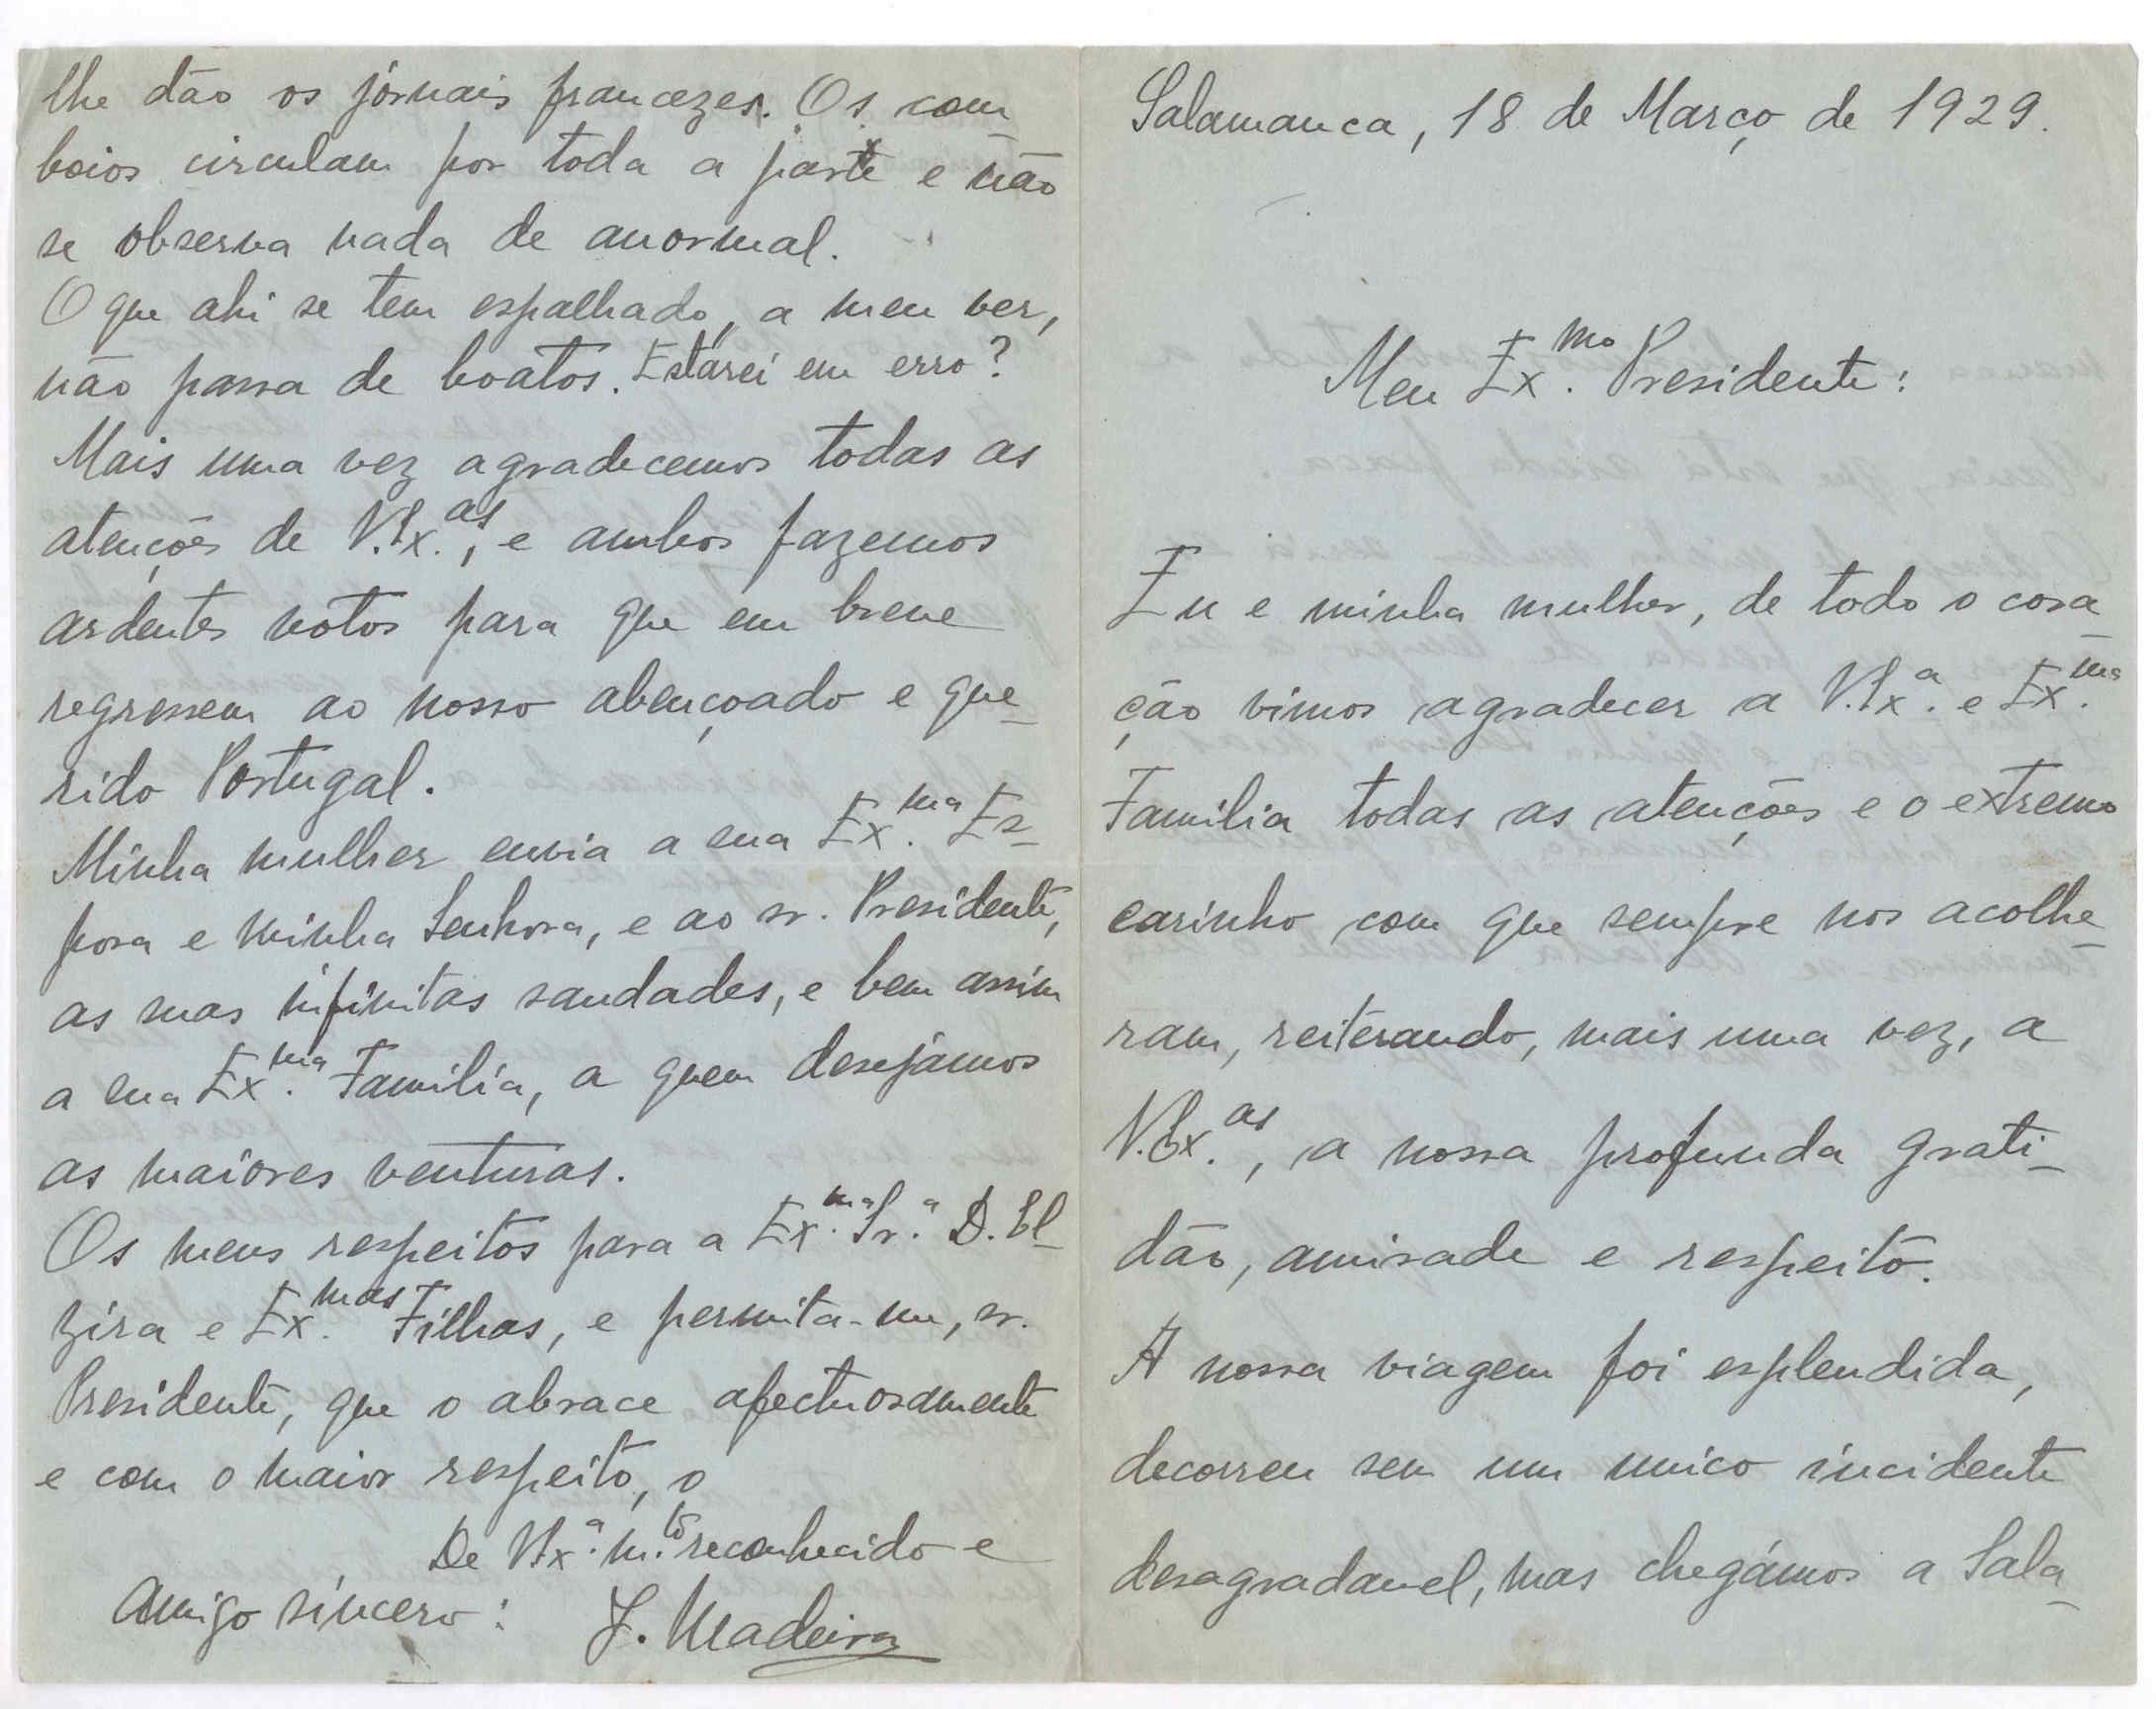 Salamanca, 18 de Março de 1929.
Meu Ex.mo Presidente:
Eu e minha mulher, de todo o cora_
ção vimos agradecer a V.Ex.a e Ex.ma
Familia todas as atenções e o extremo
carinho com que sempre nos acolhe_
ram, reiterando, mais uma vez, a
V.Ex.as, a nossa profunda grati_
dão, amisade e respeito.
A nossa viagem foi esplendida,
decorreu sem um unico incidente
desagradavel, mas chegámos a Sala_
lhe dão os jórnais francezes. Os com_
boios circulam por toda a parte e não
se observa nada de anormal.
O que ahi se tem espalhado, a meu ver,
não passa de boatos. Estarei em erro?
Mais uma vez agradecemos todas as
atenções de V.Ex.as, e ambos fazemos
ardentes votos para que em breve
regressem ao nosso abençoado e que_
rido Portugal.
Minha mulher envia a sua Ex.ma Es_
posa e minha Senhora, e ao sr. Presidente,
as suas infinitas saudades, e bem assim
a sua Ex.ma Familia, a quem desejâmos
as maiores venturas.
Os meus respeitos para a Ex.ma Sr.a D. El_
zira e Ex.mas Filhas, e permita-me, sr.
Presidente, que o abrace afectuosamente
e com o maior respeito, o
De V.Ex.a m.to reconhecido e
Amigo sincero:
J. Madeira